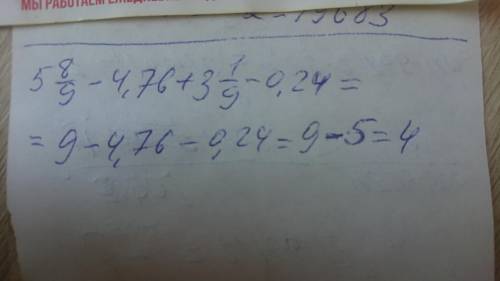 МЫ РАБОТАЕМ ЕЖЕДНЕВ
x-19683
5 8/9 - 4,76 + 3 1/9 - 0,24 =
= 9 - 4,76 - 0,24 = 9 - 5 = 4